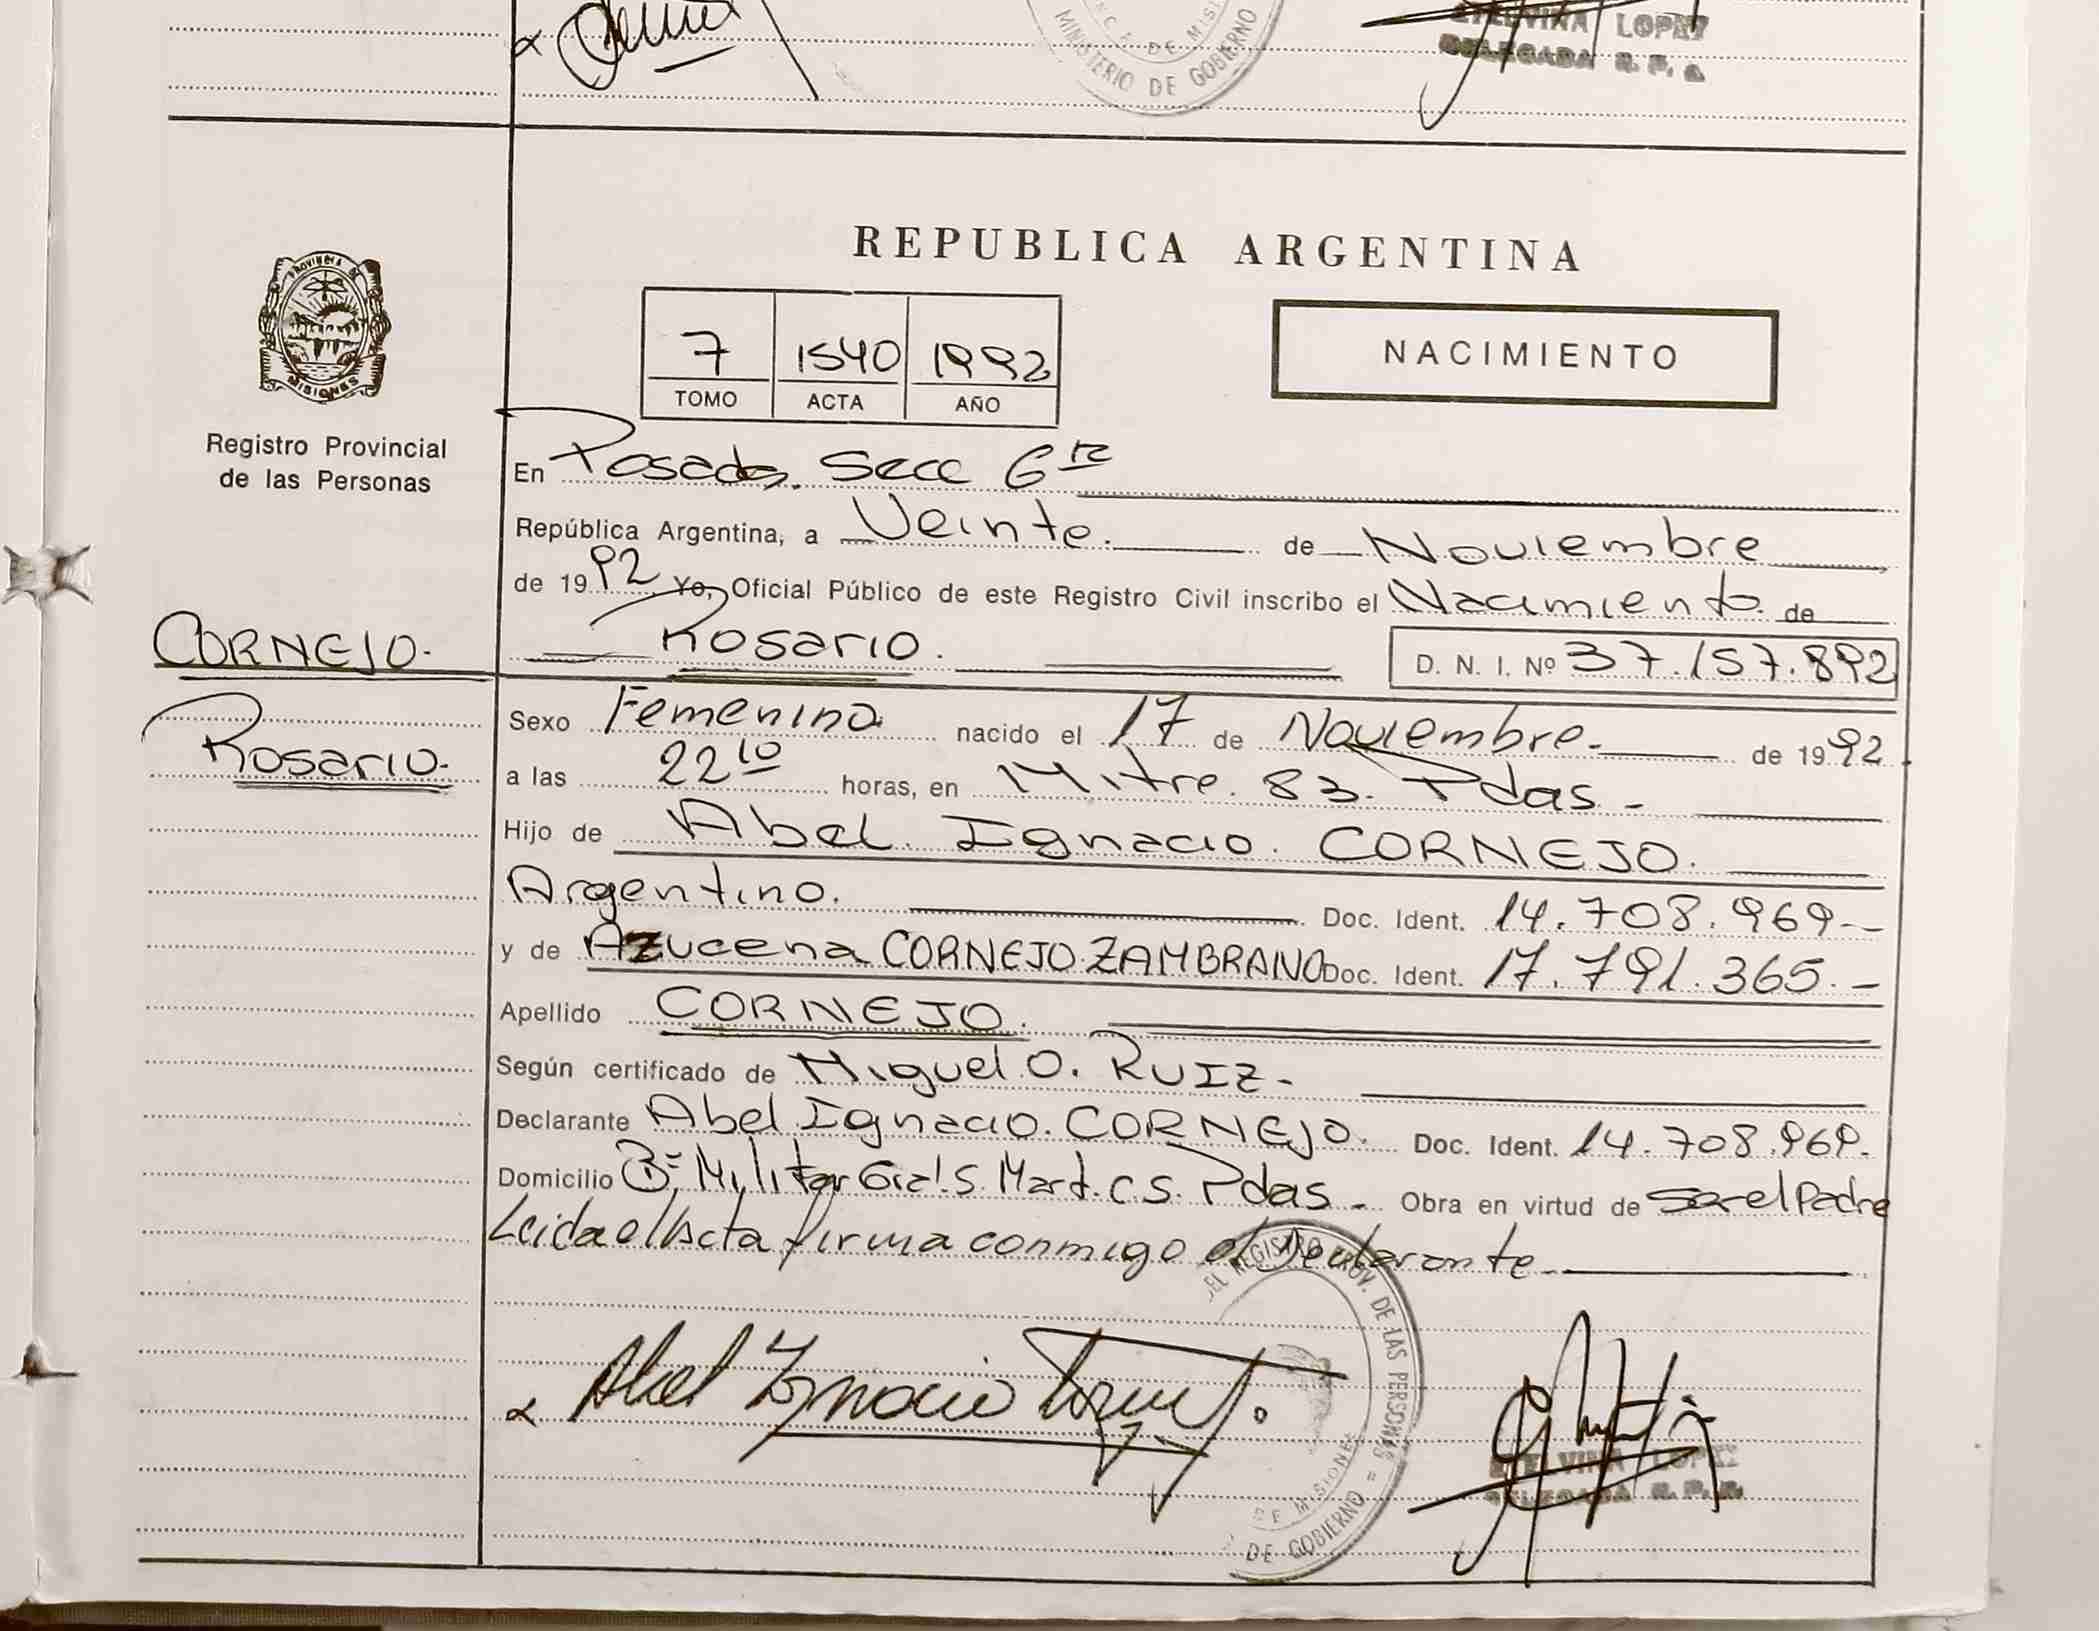 MINISTERIO DE GOBIERNO
ETELVINA LOPEZ
DELEGADA R. P.
REPUBLICA ARGENTINA
PROVINCIA DE
MISIONES
Registro Provincial
de las Personas
7 1540 1992
TOMO ACTA AÑO
NACIMIENTO
En Posadas. Secc 6ta
República Argentina, a Veinte. de Noviembre
de 1992 Yo, Oficial Público de este Registro Civil inscribo el Nacimiento de
CORNEJO. Rosario. D. N. I. Nº 37.157.892
Sexo Femenino nacido el 17 de Noviembre. de 1992.
Rosario. a las 22 10 horas, en Mitre. 83. Pdas.-
Hijo de Abel Ignacio. CORNEJO.
Argentino. Doc. Ident. 14.708.969-
y de Azucena CORNEJO ZAMBRANO Doc. Ident. 17.791.365.-
Apellido CORNEJO.
Según certificado de Miguel O. RUIZ-
Declarante Abel Ignacio. CORNEJO. Doc. Ident. 14.708.969.
Domicilio Bº Militar Gral S. Mart. c S. Pdas- Obra en virtud de ser el Padre
Leida el Acta firma conmigo el Declarante
DEL REGISTRO PROV. DE LAS PERSONAS
Abel Ignacio
DE MISIONES
DE GOBIERNO
ETELVINA LOPEZ
DELEGADA R. P.